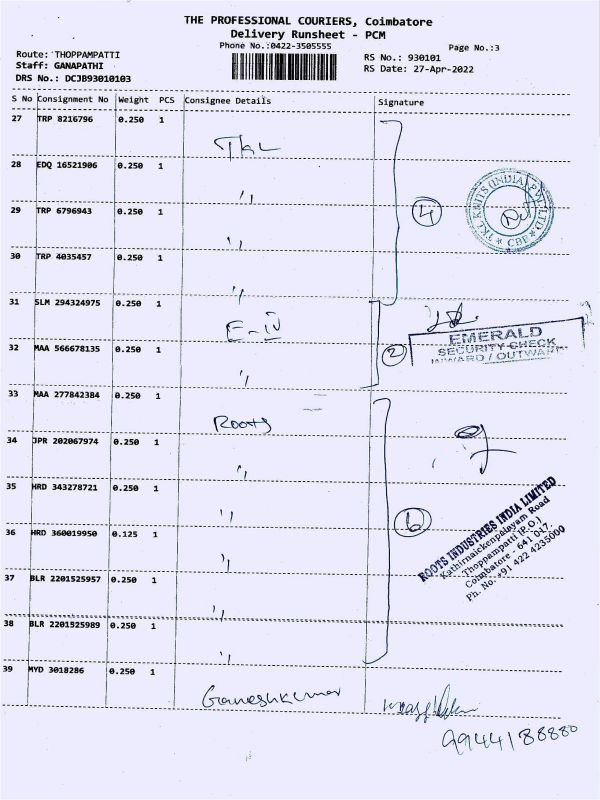 THE PROFESSIONAL COURIERS, Coimbatore
Delivery Runsheet - PCM
Phone No.:0422-3505555
Page No.:3
Route: THOPPAMPATTI
Staff: GANAPATHI
DRS No.: DCJB93010103
RS No.: 930101
RS Date: 27-Apr-2022
S No Consignment No Weight PCS Consignee Details Signature
27 TRP 8216796 0.250 1
TKL
28 EDQ 16521906 0.250 1
"
29 TRP 6796943 0.250 1
"
4
TKL KNITS (INDIA) PVT LTD
* CBE *
30 TRP 4035457 0.250 1
"
31 SLM 294324975 0.250 1
E-IV
EMERALD
SECURITY CHECK
INWARD / OUTWARD
32 MAA 566678135 0.250 1
2
"
33 MAA 277842384 0.250 1
Roots
34 JPR 202067974 0.250 1
"
35 HRD 343278721 0.250 1
"
6
36 HRD 360019950 0.125 1
"
ROOTS INDUSTRIES INDIA LIMITED
Kathirnaickenpalayam Road
Thoppampatti (P.O.)
Coimbatore - 641 017.
Ph. No. +91 422 4235000
37 BLR 2201525957 0.250 1
"
38 BLR 2201525989 0.250 1
"
39 MYD 3018286 0.250 1
Ganeshkumar
9944188880